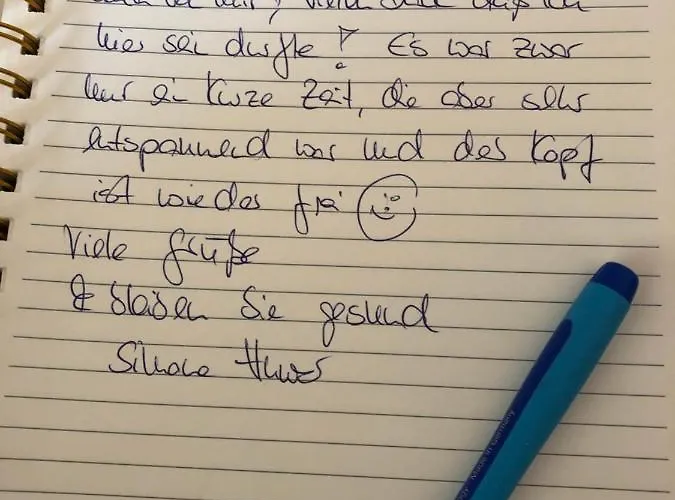 hier sein durfte! Es war zwar
nur ein kurze Zeit, die aber sehr
entspannend war und das Kopf
ist wieder frei
Viele Grüße
& bleiben Sie gesund
Simone
Made in Germany